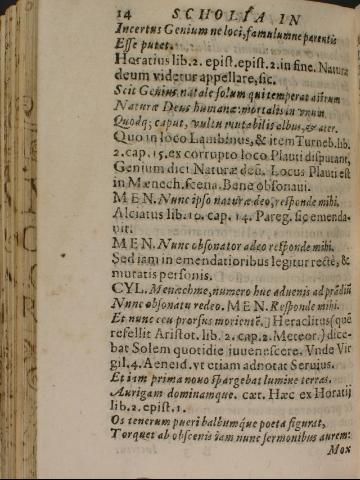 14 SCHOLIA IN
Incertus Genium ne loci, famulumne parentis
Esse putet.
Horatius lib. 2. epist. epist. 2. in fine. Naturæ
deum videtur appellare, sic.
Scit Genius natale solum qui temperat astrum
Naturæ Deus humanæ: mortalis in vnum
Quodq; caput, vultu mutabilis elbus, & ater.
Quo in loco Lambinus, & item Turneb. lib.
2. cap. 15. ex corrupto loco Plauti disputant,
Genium dici Naturæ deũ. Locus Plauti est
in Mænech. scena. Bene obsonaui.
MEN. Nunc ipso naturæ deo, responde mihi.
Alciatus lib. 10. cap. 14. Pareg. sic emenda-
uit.
MEN. Nunc obsonator adeo responde mihi.
Sed iam in emendatioribus legitur rectè, &
mutatis personis.
CYL. Menæchme, numero huc aduenis ad prãdiũ
Nunc obsonatu redeo. MEN. Responde mihi.
Et nunc ceu prorsus morientẽ.] Heraclitus (quẽ
refellit Aristot. lib. 2. cap. 2. Meteor.) dice-
bat Solem quotidie iuuenescere. Vnde Vir
gil. 4. Aeneid. vt etiam adnotat Seruius.
Et iam prima nouo spargebat lumine terras.
Aurigam dominamque. cæt. Hæc ex Horatij
lib. 2. epist. 1.
Os tenerum pueri balbumque poeta figurat,
Torquet ab obscenis iam nunc sermonibus aurem:
Mox